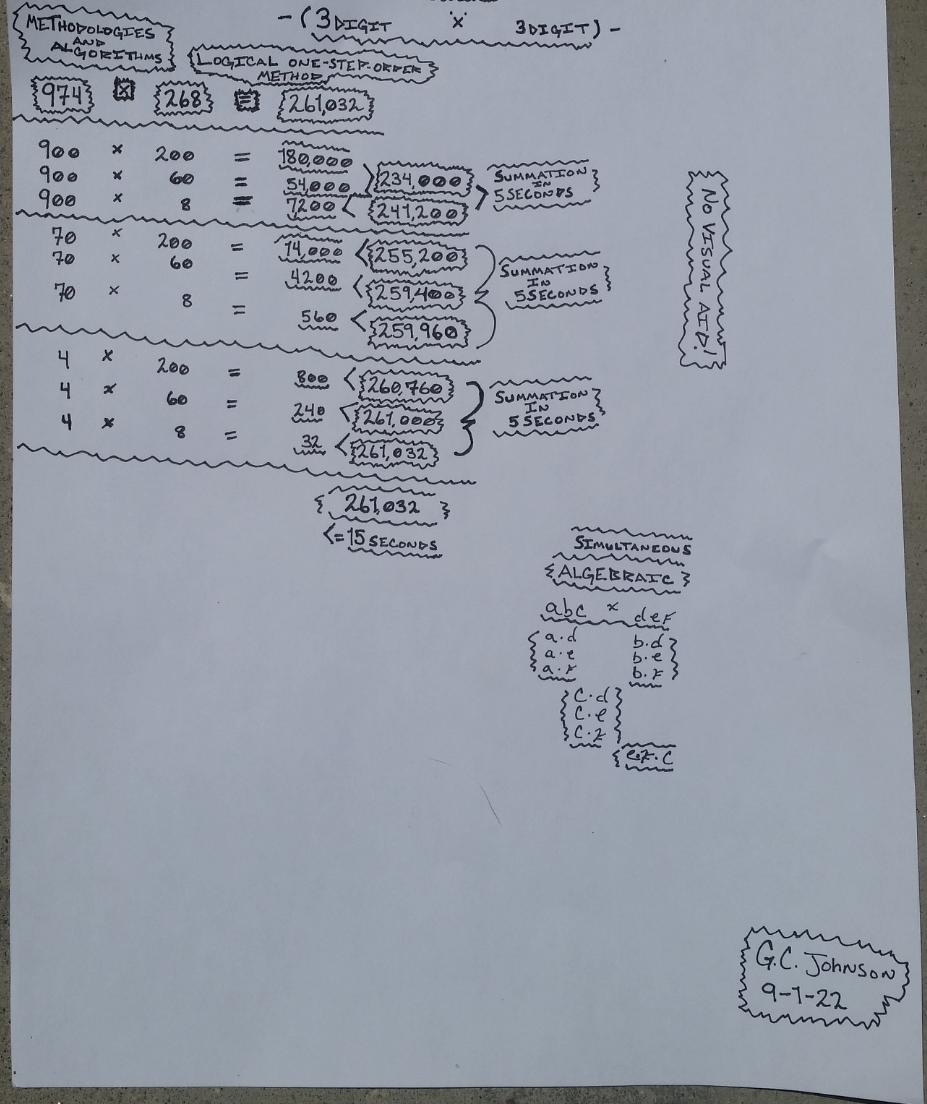 -(3DIGIT "x" 3DIGIT)-
METHODOLOGIES
AND
ALGORITHMS
LOGICAL ONE-STEP-ORDER
METHOD
974 x 268 = 261,032
900 x 200 = 180,000
234,000
900 x 60 = 54,000
900 x 8 = 7200
241,200
SUMMATION
IN
5 SECONDS
70 x 200 = 14,000
255,200
70 x 60 = 4200
259,400
70 x 8 = 560
259,960
SUMMATION
IN
5 SECONDS
4 x 200 = 800
260,760
4 x 60 = 240
261,000
4 x 8 = 32
261,032
SUMMATION
IN
5 SECONDS
261,032
<= 15 SECONDS
NO VISUAL AID!
SIMULTANEOUS
ALGEBRAIC
abc x def
a.d b.d
a.e b.e
a.f b.f
c.d
c.e
c.f
G.C. JOHNSON
9-1-22